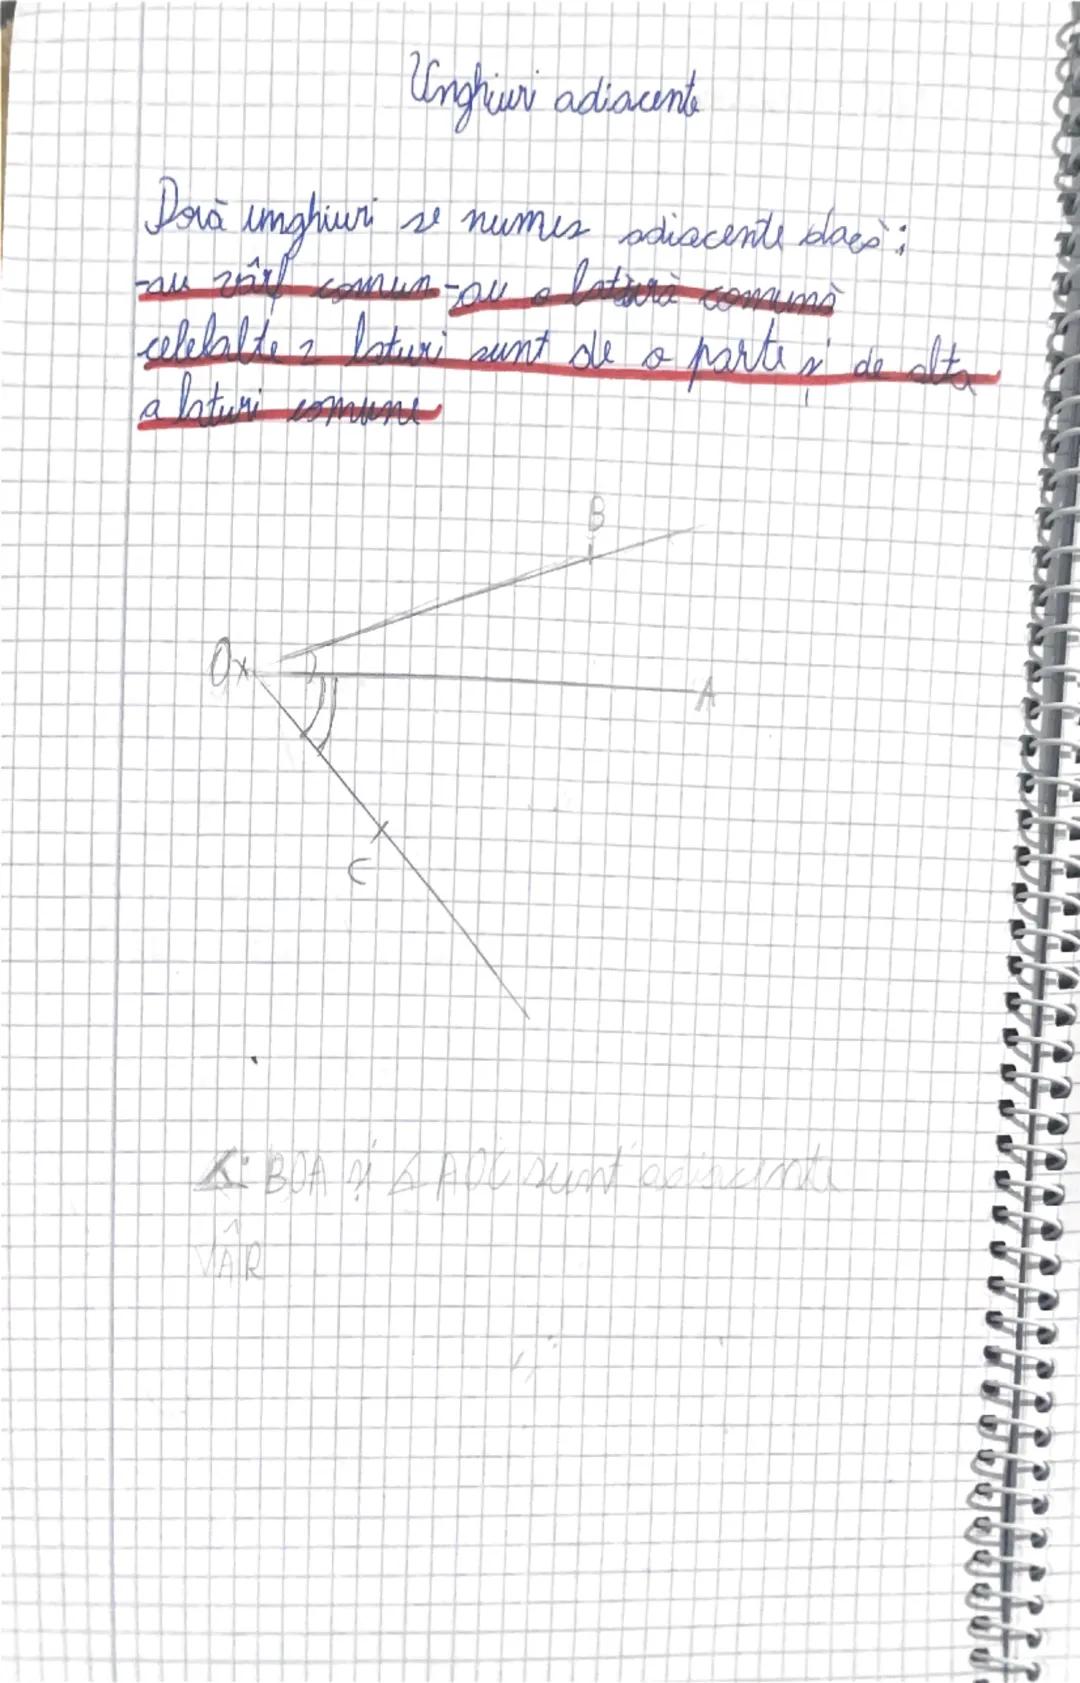 Unghiuri adiacente
Două unghiuri se numesc adiacente dacă:
-au vârf comun -au o latură comună
celelalte 2 laturi sunt de o parte și de alta
a laturi comune
B
O
A
C
∢ BOA și ∢ AOC sunt adiacente
VÂR